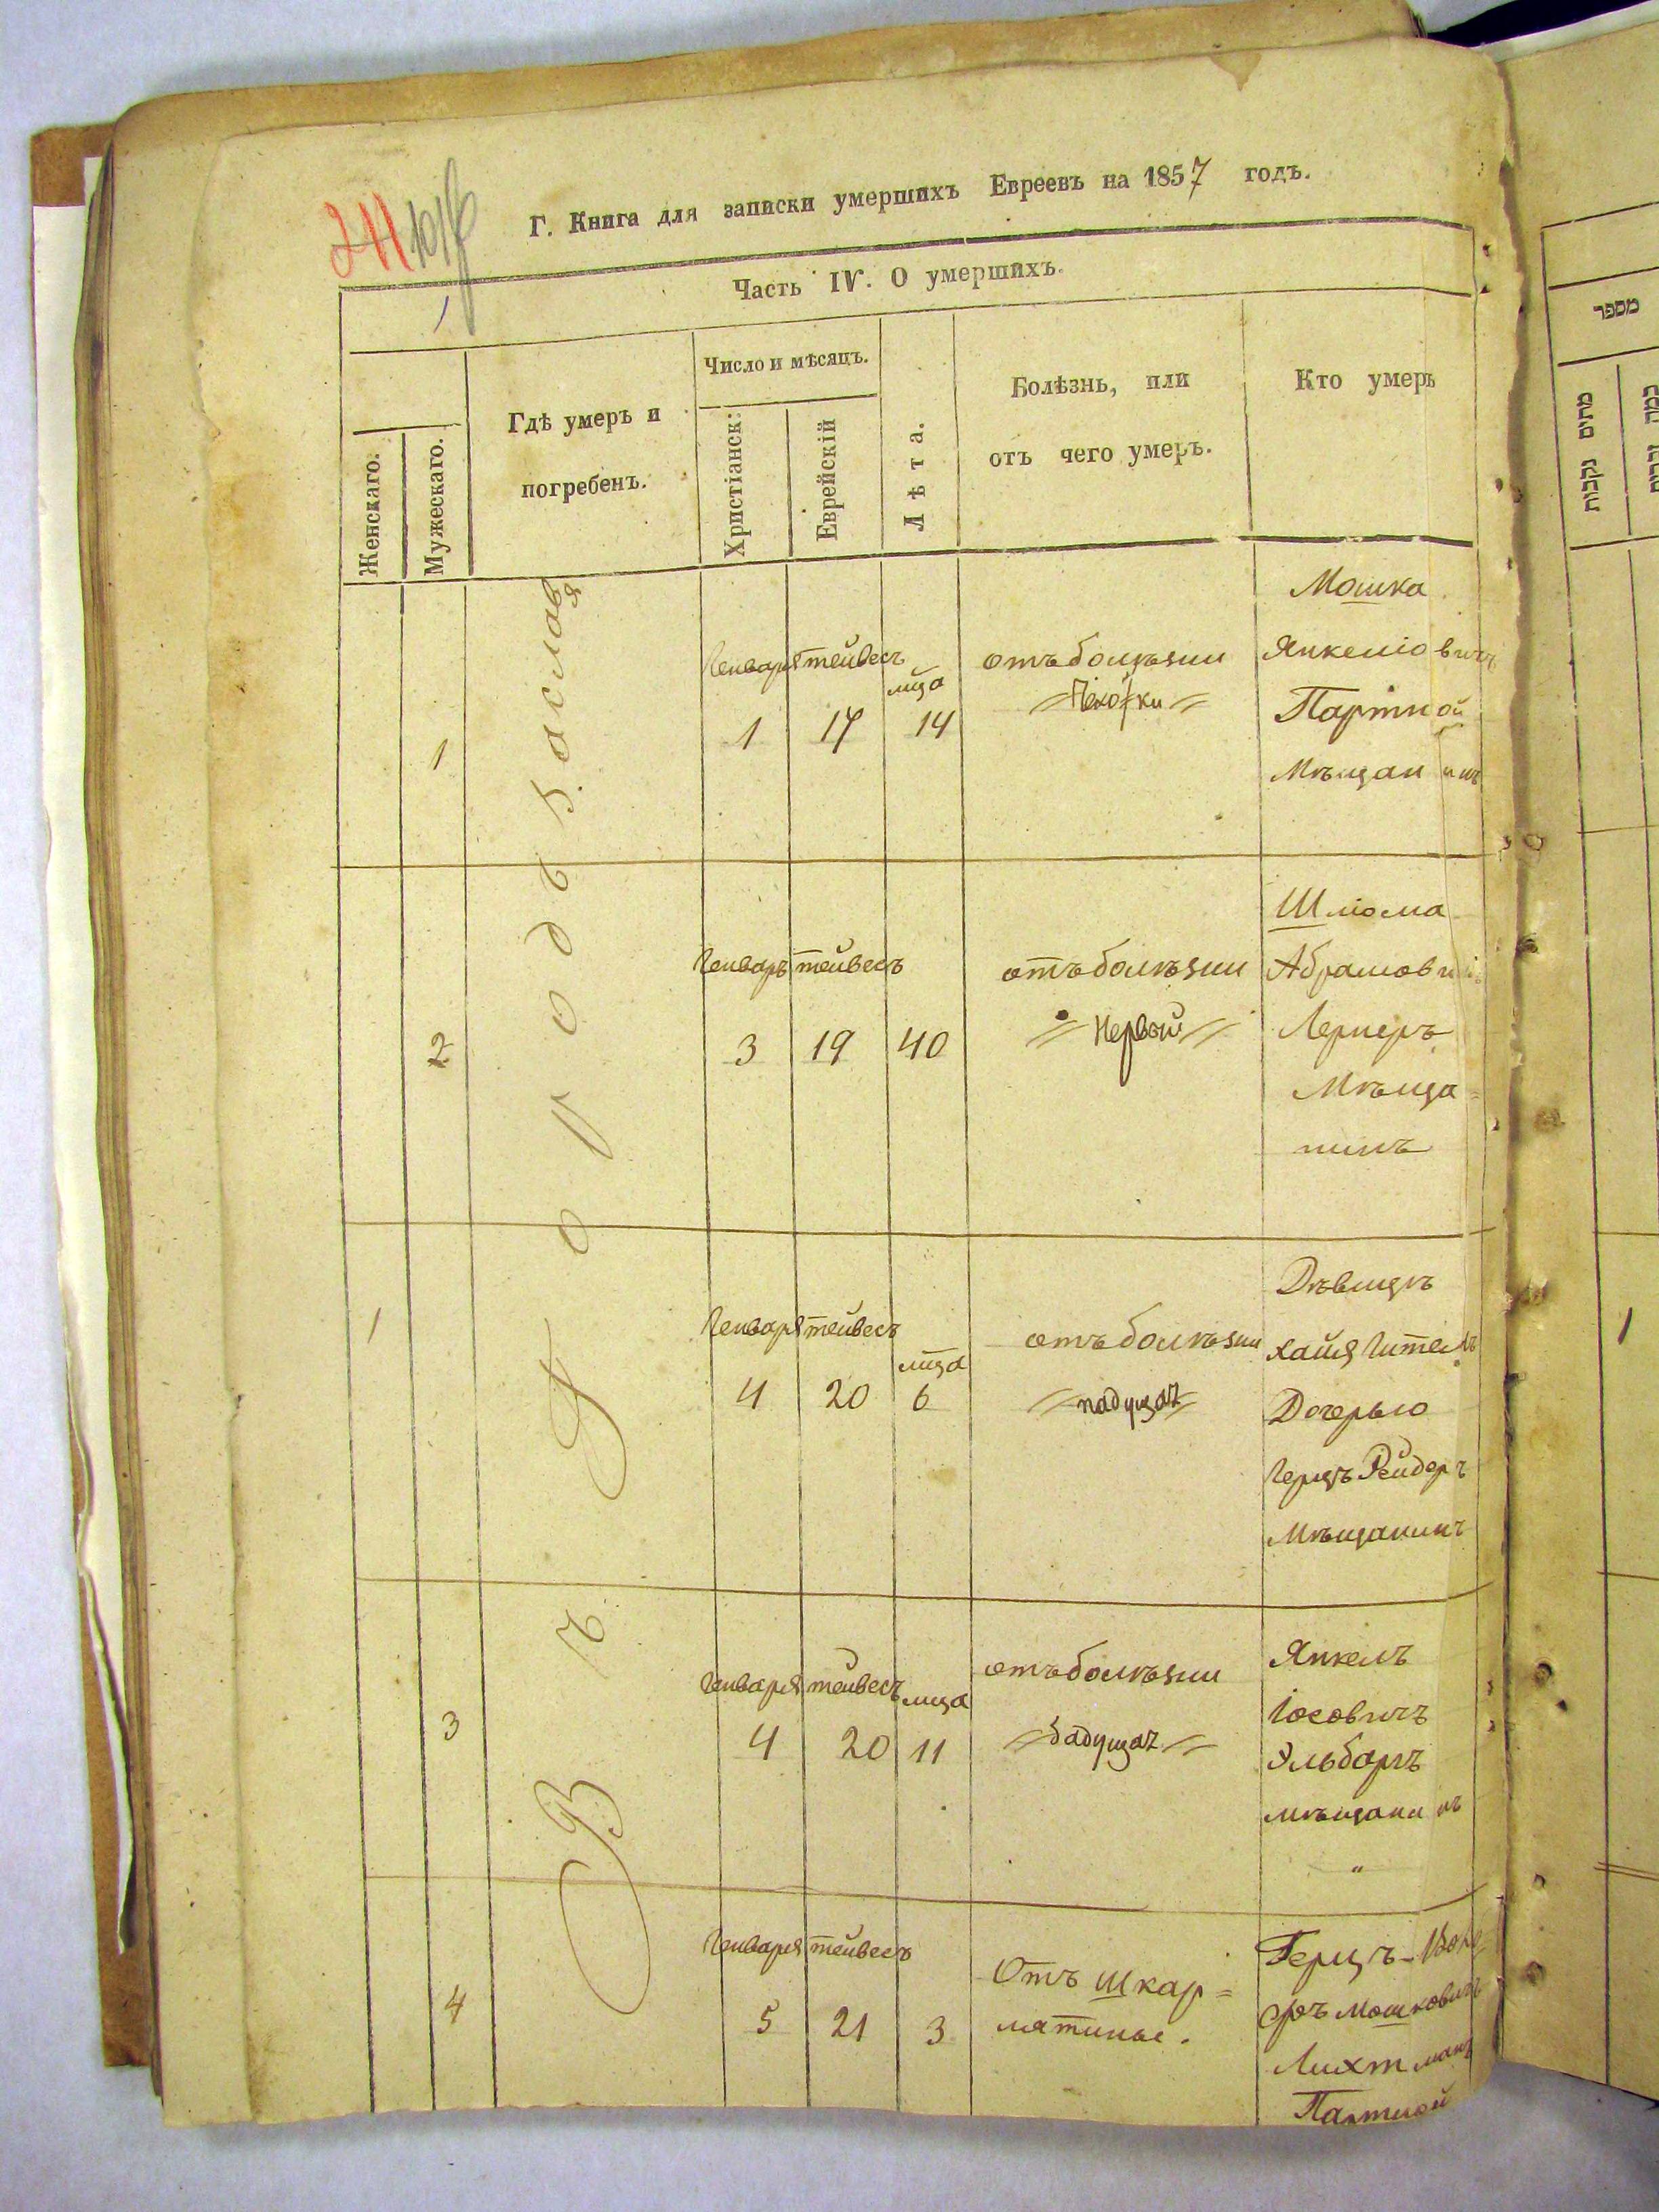 241
Г. Книга для записки умершихъ Евреевъ на 1857 годъ.
Часть IV. О умершихъ.
Женскаго.
Мужескаго.
Гдѣ умеръ и
погребенъ.
Число и мѣсяцъ.
Христіанск:
Еврейскій
Лѣта.
Болѣзнь, или
отъ чего умеръ.
Кто умеръ
Въ Городѣ Заславѣ
1
Генваря
1
тейвесъ
17
мца
14
отъ болѣзни
Мошка
Янкеліовичъ
Партной
Мѣщанинъ
2
Генваръ
3
тейвесъ
19
40
отъ болѣзни
Нервой
Шліома
Абрамовичъ
Лернеръ
Мѣща=
нинъ
1
Генваря
4
тейвесъ
20
мца
6
отъ болѣзни
падуцаъ
Дѣвицѣ
хайя Гитель
Дочерью
Герцъ Рейдеръ
Мѣщанинъ
3
Генваря
4
тейвесъ
20
мца
11
отъ болѣзни
Янкель
Іосовичъ
мѣщанинъ
"
4
Генваря
5
тейвесъ
21
3
Отъ Шкар=
латиные.
Герцъ-
Мошковичъ
Лихтманъ
Партной
מספר
מתים נקבות
1